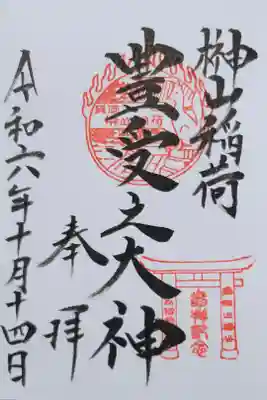 榊山稲荷
豊受之大神
奉拝
令和六年十月十四日